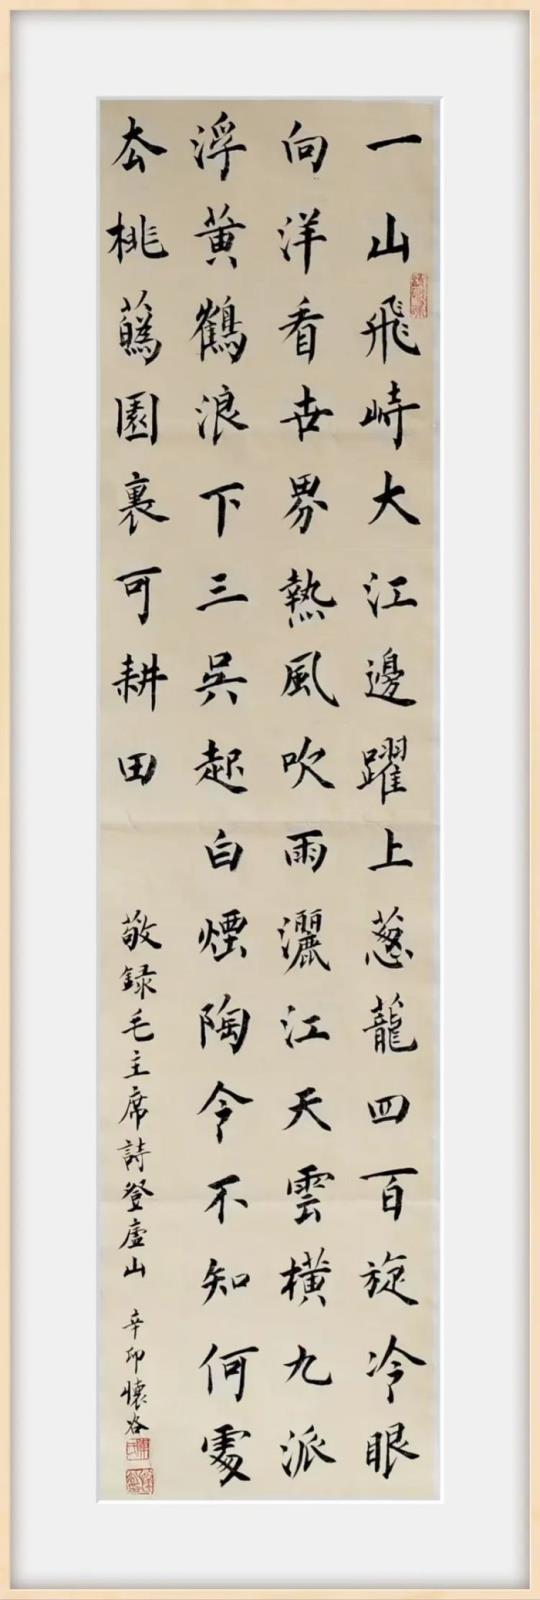 一山飛峙大江邊躍上葱蘢四百旋冷眼
向洋看世界熱風吹雨灑江天雲橫九派
浮黃鶴浪下三吳起白煙陶令不知何處
去桃蘤園裏可耕田
敬録毛主席詩登廬山 辛卯懷谷